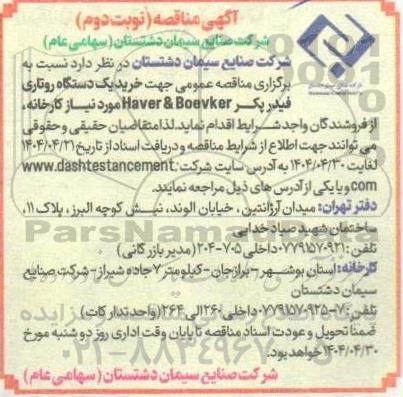 آگهی مناقصه (نوبت دوم)
شرکت صنایع سیمان دشتستان (سهامی عام)
شرکت صنایع سیمان دشتستان در نظر دارد نسبت به
برگزاری مناقصه عمومی جهت خرید یک دستگاه روتاری
فیدر پکر Haver & Boevker مورد نیاز کارخانه،
از فروشندگان واجد شرایط اقدام نماید. لذا متقاضیان حقیقی و حقوقی
می توانند جهت اطلاع از شرایط مناقصه و دریافت اسناد از تاریخ ۱۴۰۴/۰۴/۲۱
لغایت ۱۴۰۴/۰۴/۳۰ به آدرس سایت شرکت: www.dashtestancement.
com و یا یکی از آدرس های ذیل مراجعه نمایند.
دفتر تهران: میدان آرژانتین، خیابان الوند، نبش کوچه البرز، پلاک ۱۱،
ساختمان شهید صیاد خدایی
تلفن: ۰۷۷۹۱۵۷۰۹۲۱ داخلی ۷۰۵-۲۰۴ (مدیر بازرگانی)
کارخانه: استان بوشهر - برازجان - کیلومتر ۷ جاده شیراز - شرکت صنایع
سیمان دشتستان
تلفن: ۷۰-۰۷۷۹۱۵۷۰۹۲۵ داخلی ۲۶۰ الی ۲۶۴ (واحد تدارکات)
ضمناً تحویل و عودت اسناد مناقصه تا پایان وقت اداری روز دوشنبه مورخ
۱۴۰۴/۰۴/۳۰ خواهد بود.
شرکت صنایع سیمان دشتستان (سهامی عام)
ParsNamadData
۰۲۱-۸۸۳۴۹۶۷۰